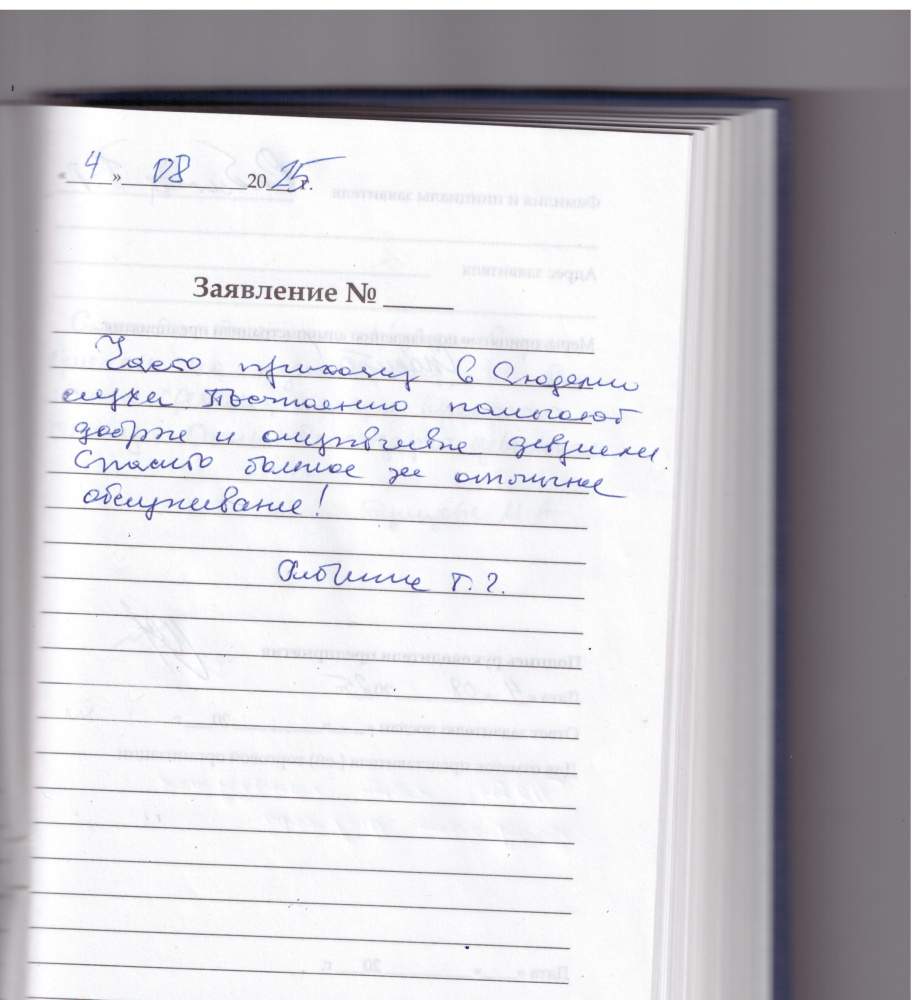 «4» 08 2025 г.
Заявление №
Часто прихожу в Академию
слуха. Постоянно помогают
добрые и отзывчивые девушки.
Спасибо большое за отличное
обслуживание!
Т. Г.